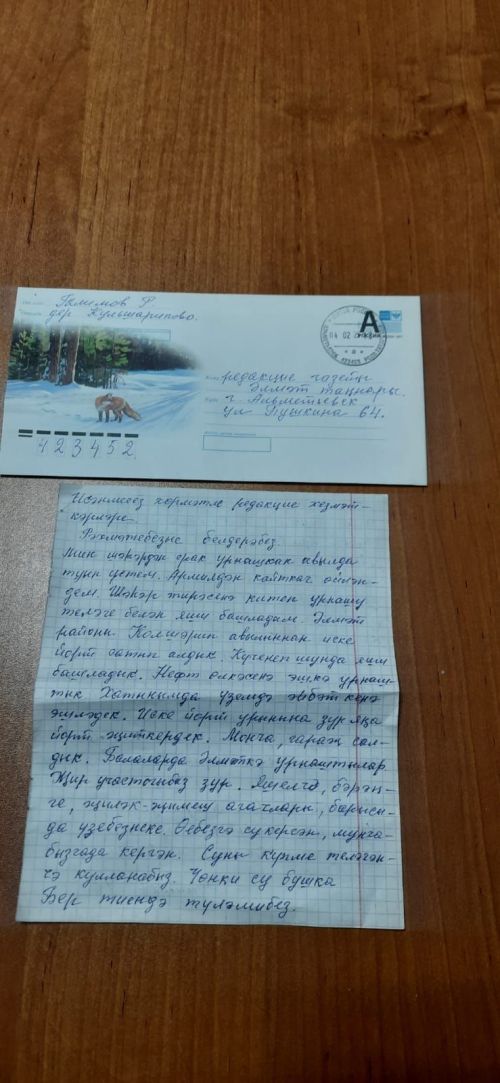 Галимов Р.
дер Кульшарипово.
А
РОССИЯ
04 02 2
редакцие газеты
Элмэт таңнары.
г Альметьевск
ул Пушкина 64.
423452
Исәнмесез хөрмәтле редакцие хезмәт-
кәрләре.
Рәхмәтебезне белдерәбез.
Мин шәһәрдән ерак урнашкан авылда
туып үстем. Армиядән кайткач өйлән-
дем. Шәһәр тирәсенә китеп урнашу
теләге белән яши башладым. Әлмәт
районы Колшәрип авылыннан иске
йорт сатып алдык. Күченеп шунда яши
башладык. Нефт өлкәсенә эшкә урнаш-
тык Хатынымда үземдә әйбәт кенә
эшләдек. Иске йорт урынына зур яңа
йорт җиткердек. Монча, гараж сал-
дык. Балаларда Әлмәткә урнаштылар
Җир участогыбыз зур. Яшелчә, бәрәң-
ге, җиләк-җимеш агачлары, барысы-
да үзебезнеке. Өебезгә су кергән, мунча-
бызгада кергән. Суны күпме теләгән-
чә кулланабыз. Чөнки су бушка
Бер тиендә түләмибез.